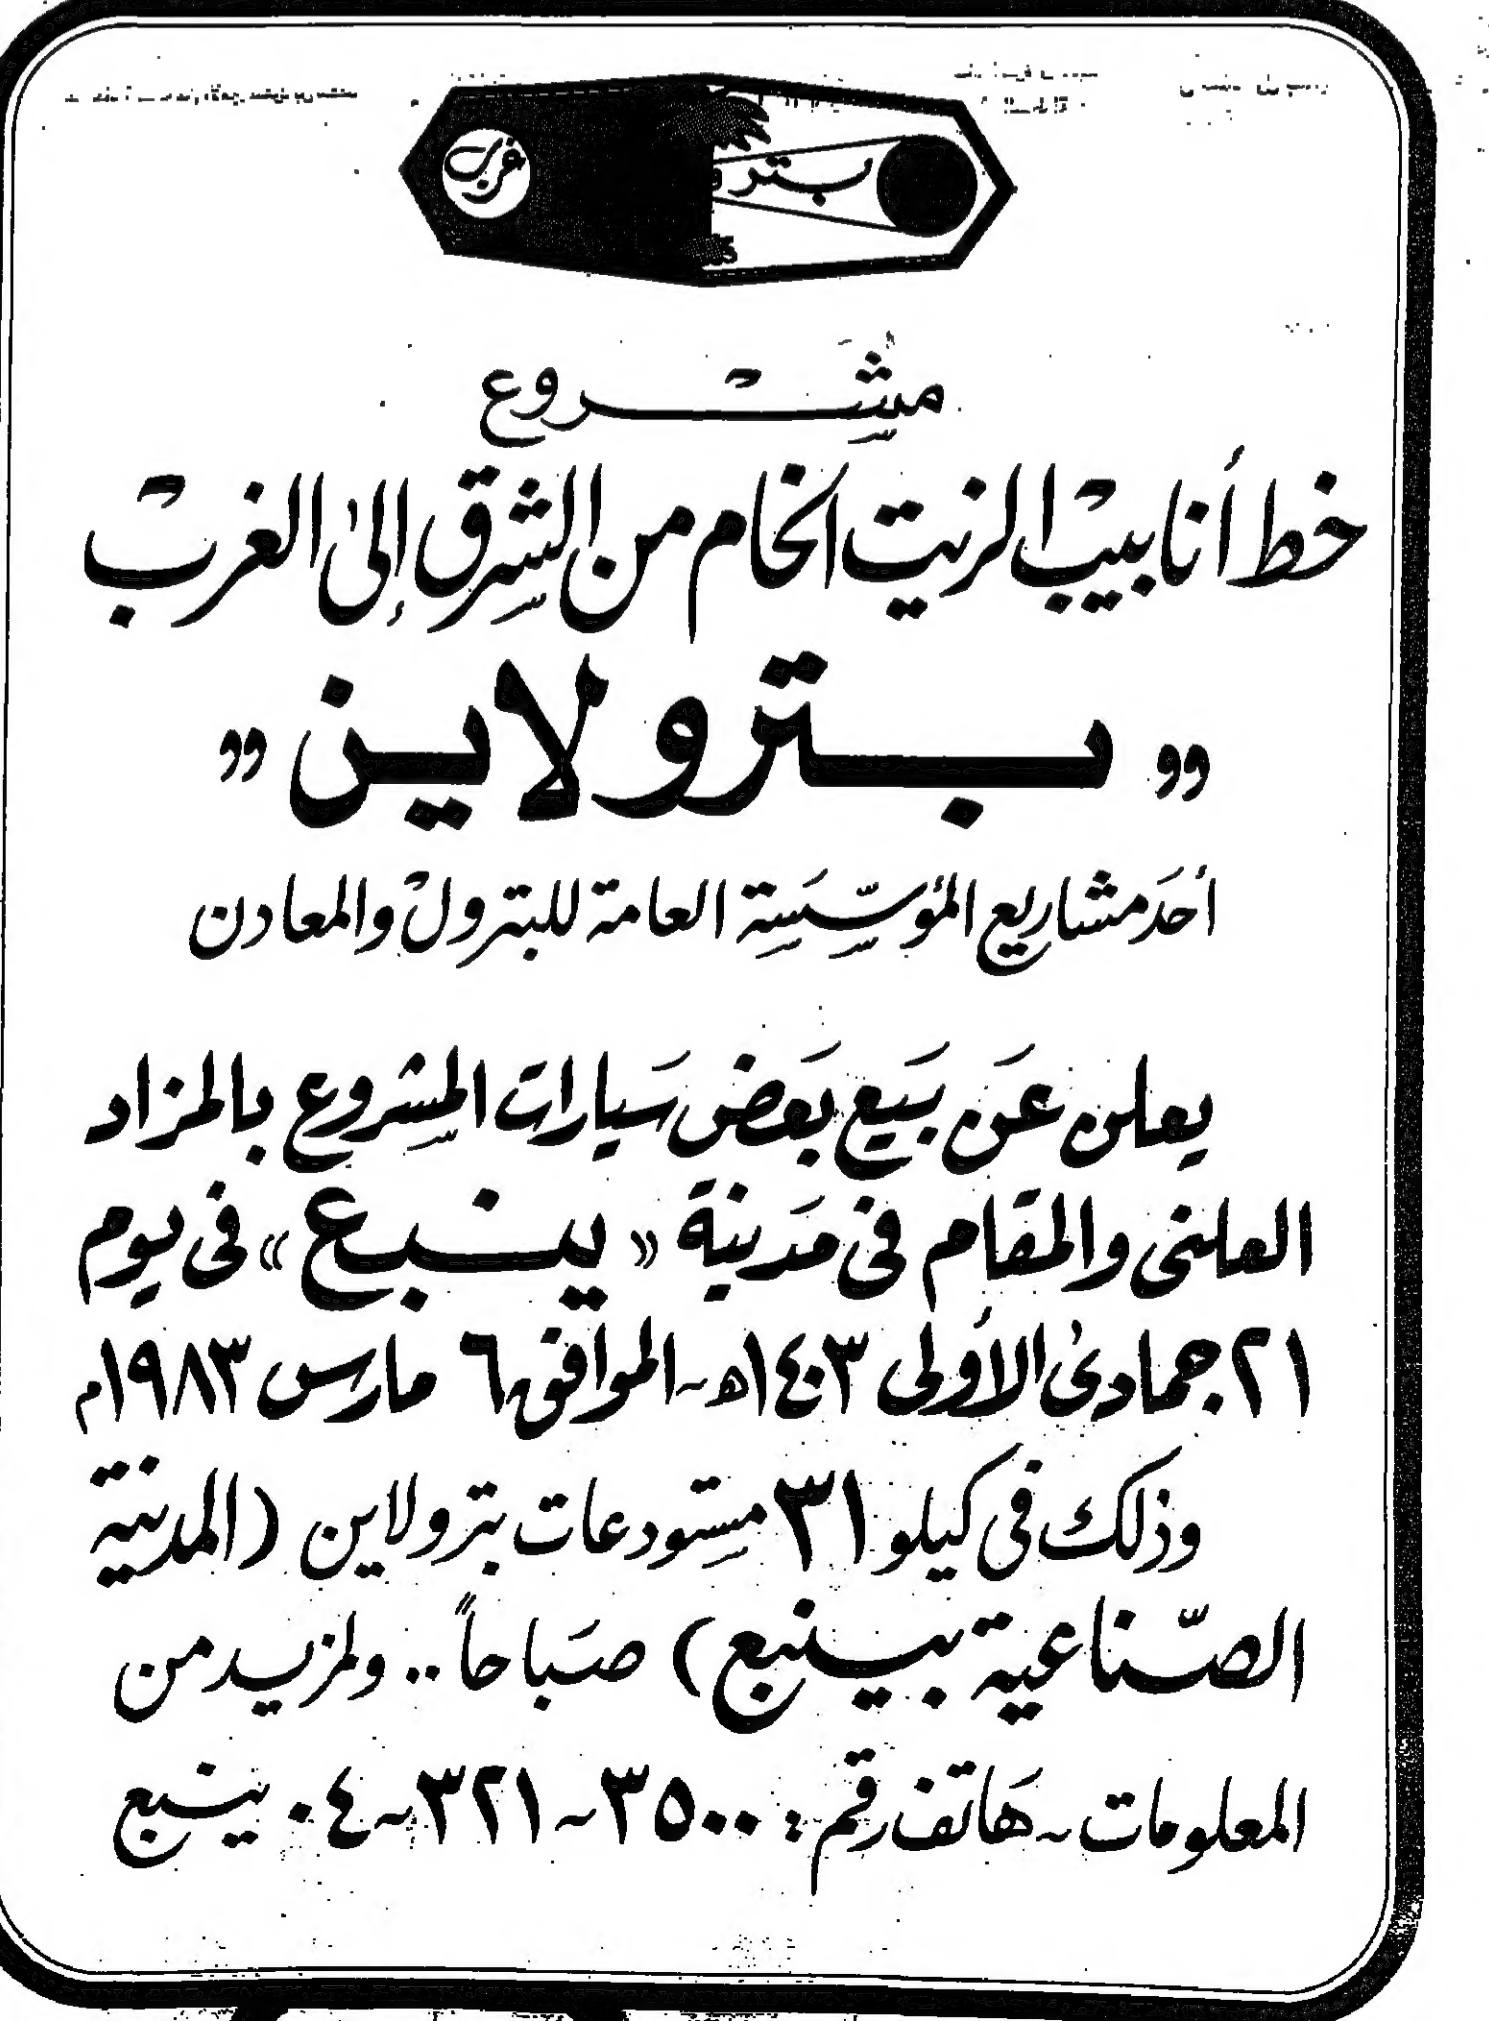 غرب
بترو
مشروع
خط أنابيب الزيت الخام من الشرق إلى الغرب
" بترولاين "
أحد مشاريع المؤسسة العامة للبترول والمعادن
يعلن عن بيع بعض سيارات المشروع بالمزاد
العلني والمقام في مدينة « ينبع » في يوم
٢١ جمادى الأولى ١٤٠٣هـ - الموافق ٦ مارس ١٩٨٣م
وذلك في كيلو ٣١ مستودعات بترولاين (المدينة
الصّناعية بينبع) صباحاً .. ولمزيد من
المعلومات - هاتف رقم : ٣٥٠٠ - ٣٢١ - ٠٤ ينبع